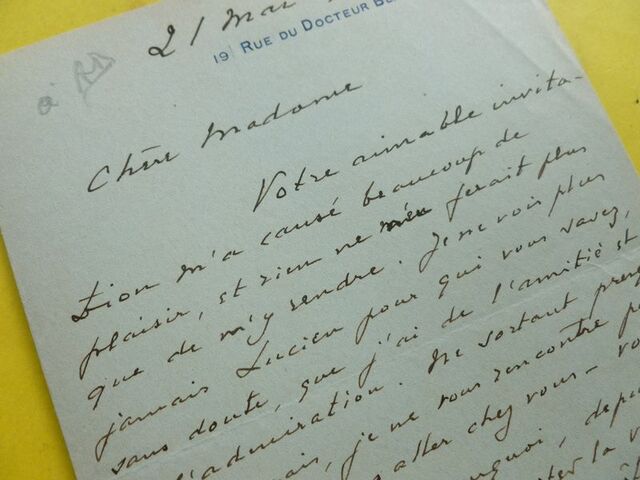 21 Mai
19, RUE DU DOCTEUR
à
Chère Madame
Votre aimable invita-
tion m'a causé beaucoup de
plaisir, et rien ne me ferait plus
que de m'y rendre. Je ne vois plus
jamais Lucien pour qui vous savez,
sans doute, que j'ai de l'amitié et
l'admiration. Ne sortant
je ne vous rencontre
aller chez vous -